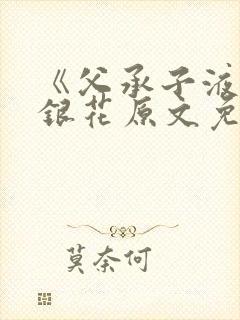 《父承子液
銀花原文免
莫奈何